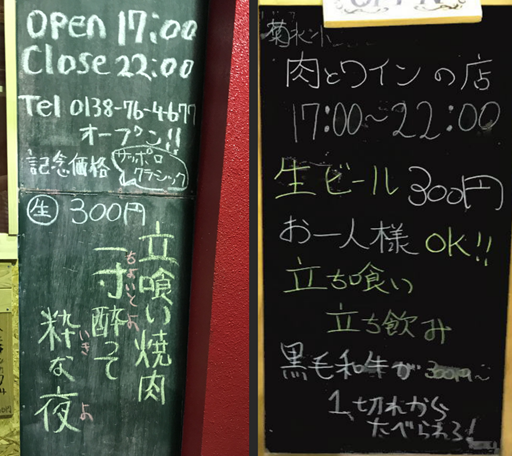 Open 17:00
Close 22:00
Tel 0138-76-4677
オープン!!
記念価格
サッポロ
クラシック
生 300円
立喰い焼肉
一寸酔って
ちょいとよ
粋な夜
いき
よ
菊水小
肉とワインの店
17:00~22:00
生ビール 300円
お一人様 OK!!
立ち喰い
立ち飲み
黒毛和牛が 300円~
1切れから
たべられる!